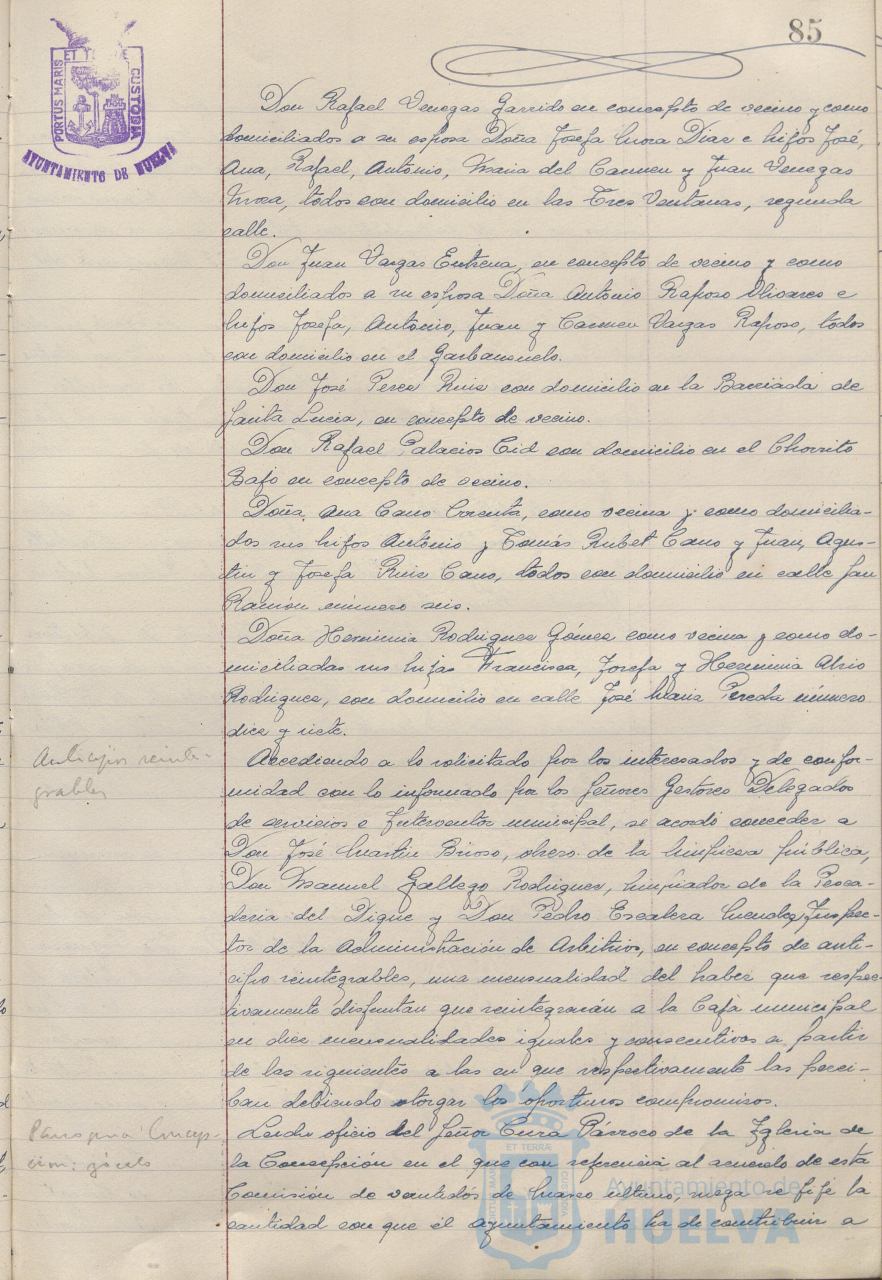 85
PORTUS MARIS ET TERRE CUSTODIA
AYUNTAMIENTO DE HUELVA
Don Rafael Venegas Garrido en concepto de vecino y como
domiciliados a su esposa Doña Josefa Mora Diaz e hijos José,
Ana, Rafael, Antonio, Maria del Carmen y Juan Venegas
Mora, todos con domicilio en las Tres Ventanas, segunda
calle.
Don Juan Vargas Entrena, en concepto de vecino y como
domiciliados a su esposa Doña Antonio Raposo Olivares e
hijos Josefa, Antonio, Juan y Carmen Vargas Raposo, todos
con domicilio en el Garbanzuelo.
Don José Perez Ruiz con domicilio en la Barriada de
Santa Lucia, en concepto de vecino.
Don Rafael Palacios Cid con domicilio en el Chorrito
Bajo en concepto de vecino.
Doña Ana Cano como vecina y como domicilia-
dos sus hijos Antonio y Tomás Rubet Cano y Juan, Agus-
tin y Josefa Ruiz Cano, todos con domicilio en calle San
Ramón número seis.
Doña Herminia Rodriguez Gómez como vecina y como do-
miciliadas sus hijas Francisca, Josefa y Herminia
Rodriguez, con domicilio en calle José Maria Pereda número
diez y siete.
Anticipos reinte-
grables
Accediendo a lo solicitado por los interesados y de confor-
midad con lo informado por los Señores Gestores Delegados
de servicios e Interventor municipal, se acordó conceder a
Don José Martin Brioso, obrero de la limpieza pública,
Don Manuel Gallego Rodriguez, limpiador de la Pesca-
deria del Dique y Don Pedro Escalera Mendez, Inspec-
tor de la Administración de Arbitrios, en concepto de anti-
cipo reintegrables, una mensualidad del haber que respec-
tivamente disfrutan que reintegrarán a la Caja municipal
en diez mensualidades iguales y consecutivas a partir
de las siguientes a las en que respectivamente las perci-
ban debiendo otorgar los oportunos compromisos.
Parroquia Concep-
ción: zócalo
Leido oficio del Señor Cura Párroco de la Iglesia de
la Concepción en el que con referencia al acuerdo de esta
Comisión de veintidós de Marzo último, ruega se fije la
cantidad con que el Ayuntamiento ha de contribuir a
Ayuntamiento de
HUELVA